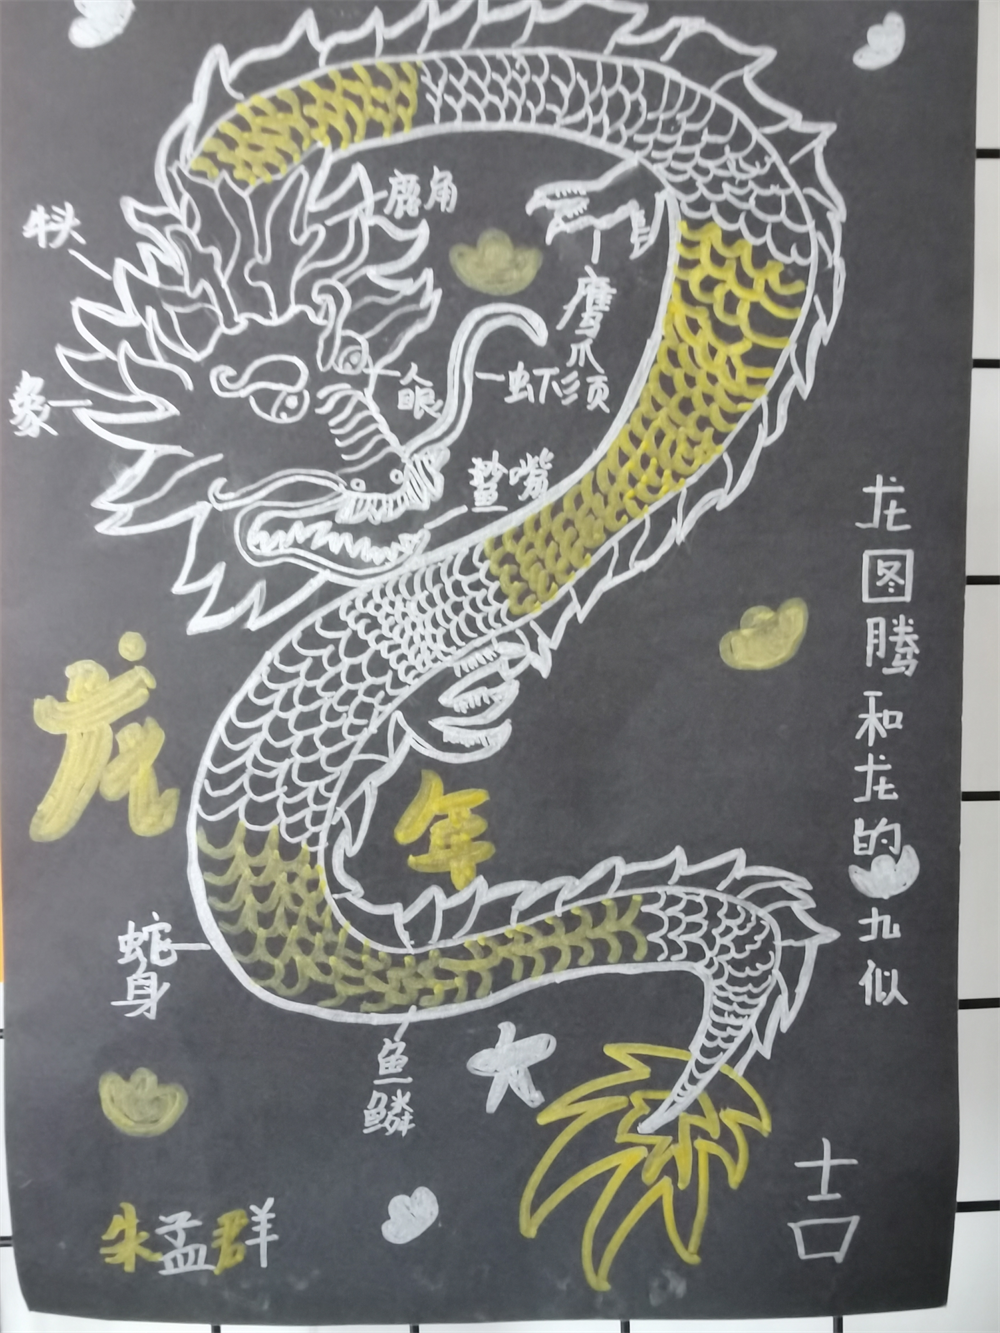 鹿角
鹰爪
人眼
虾须
鲨嘴
龙图腾和龙的九似
龙年
蛇身
鱼鳞
大吉
朱孟群